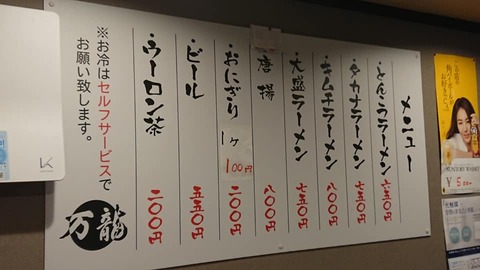 メニュー
・とんこつラーメン 六五〇円
・タカナラーメン 七五〇円
・キムチラーメン 七五〇円
・大盛ラーメン 七五〇円
唐揚 八〇〇円
・おにぎり 1ヶ 100円 二〇〇円
・ビール 五五〇円
・ウーロン茶 二〇〇円
※お冷はセルフサービスで
お願い致します。
万龍
¥500